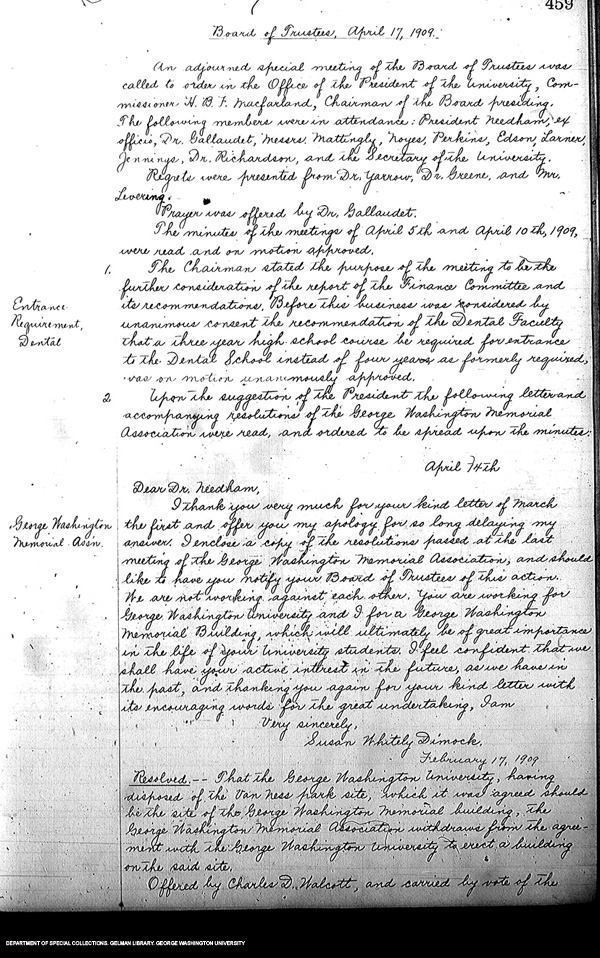 459
Board of Trustees, April 17, 1909.
An adjourned special meeting of the Board of Trustees was
called to order in the Office of the President of the University, Com-
missioner H. B. F. Macfarland, Chairman of the Board presiding.
The following members were in attendance: President Needham, ex
officio, Dr. Gallaudet, Messrs. Mattingly, Noyes, Perkins, Edson, Larner,
Jennings, Dr. Richardson, and the Secretary of the University.
Regrets were presented from Dr. Yarrow, Dr. Greene, and Mr.
Levering.
Prayer was offered by Dr. Gallaudet.
The minutes of the meetings of April 5th and April 10th, 1909,
were read and on motion approved.
1. The Chairman stated the purpose of the meeting to be the
further consideration of the report of the Finance Committee and
Entrance
its recommendations. Before this business was considered by
Requirement,
unanimous consent the recommendation of the Dental Faculty
Dental
that a three year high school course be required for entrance
to the Dental School instead of four years as formerly required,
was on motion unanimously approved.
2 Upon the suggestion of the President the following letter and
accompanying resolutions of the George Washington Memorial
Association were read, and ordered to be spread upon the minutes:
April 14th
Dear Dr. Needham,
I thank you very much for your kind letter of March
George Washington
the first and offer you my apology for so long delaying my
Memorial Assn.
answer. I enclose a copy of the resolutions passed at the last
meeting of the George Washington Memorial Association, and should
like to have you notify your Board of Trustees of this action.
We are not working against each other. You are working for
George Washington University and I for a George Washington
Memorial Building, which will ultimately be of great importance
in the life of your University students. I feel confident that we
shall have your active interest in the future, as we have in
the past, and thanking you again for your kind letter with
its encouraging words for the great undertaking, I am
Very sincerely,
Susan Whitely Dimock.
February 17, 1909
Resolved.-- That the George Washington University, having
disposed of the Van Ness park site, which it was agreed should
be the site of the George Washington Memorial building, the
George Washington Memorial Association withdraws from the agree-
ment with the George Washington University to erect a building
on the said site.
Offered by Charles D. Walcott, and carried by vote of the
DEPARTMENT OF SPECIAL COLLECTIONS. GELMAN LIBRARY. GEORGE WASHINGTON UNIVERSITY